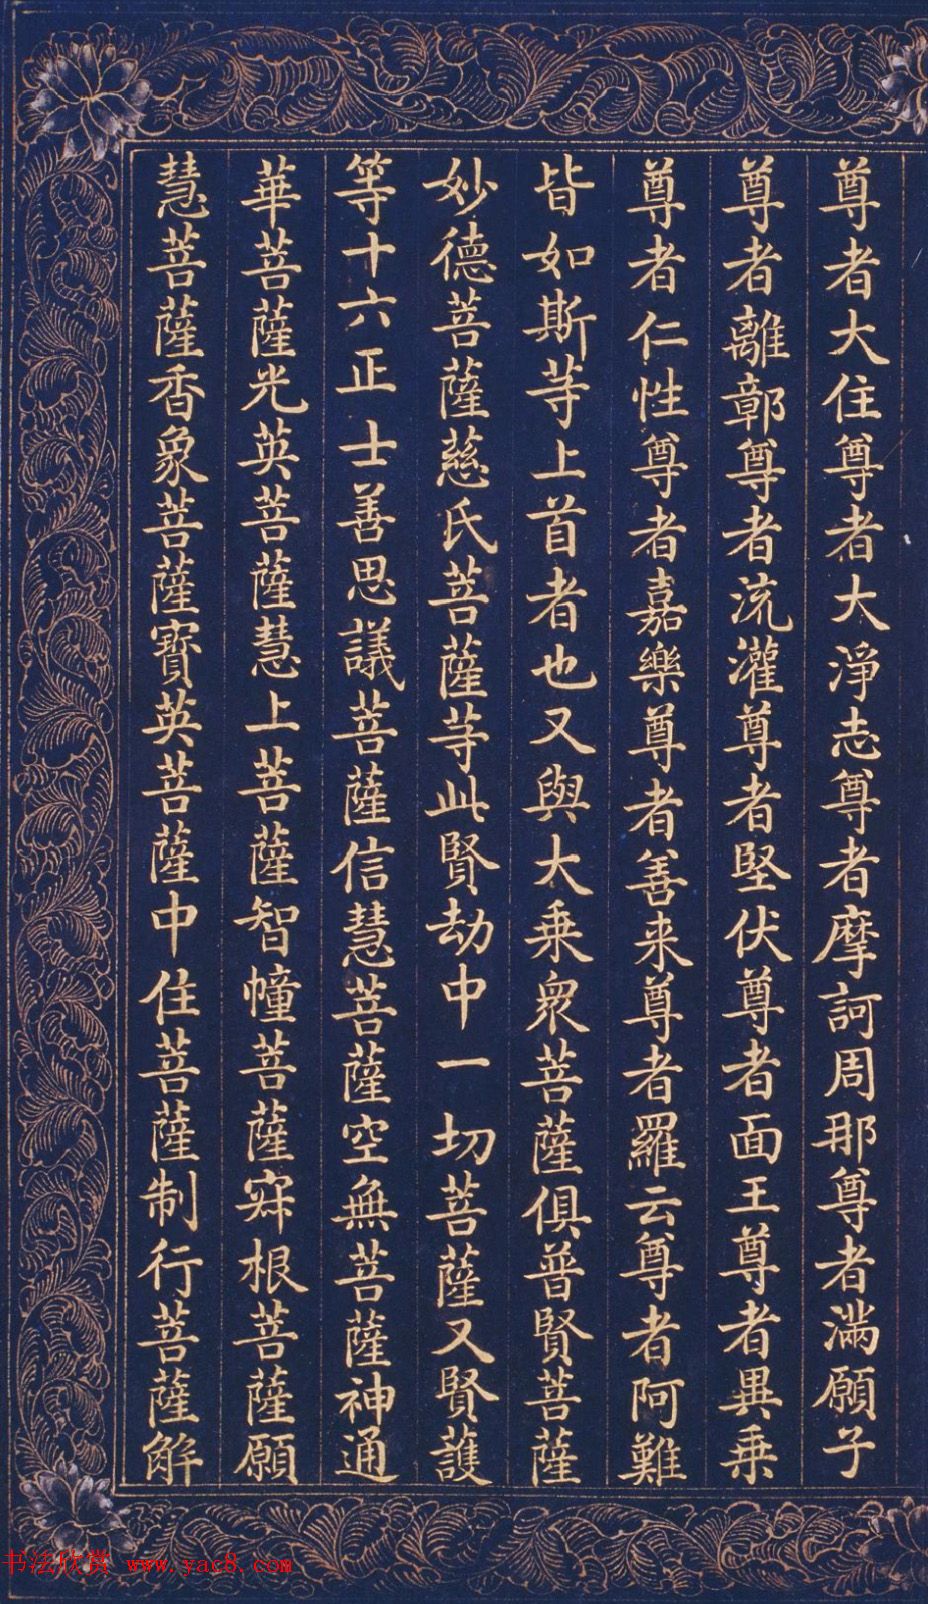 尊者大住尊者大淨志尊者摩訶周那尊者滿願子
尊者離鄣尊者流灌尊者堅伏尊者面王尊者異乗
尊者仁性尊者嘉樂尊者善来尊者羅云尊者阿難
皆如斯等上首者也又與大乗衆菩薩俱普賢菩薩
妙德菩薩慈氏菩薩等此賢劫中一切菩薩又賢護
等十六正士善思議菩薩信慧菩薩空無菩薩神通
華菩薩光英菩薩慧上菩薩智幢菩薩寂根菩薩願
慧菩薩香象菩薩寶英菩薩中住菩薩制行菩薩解
书法欣赏 www.yac8.com